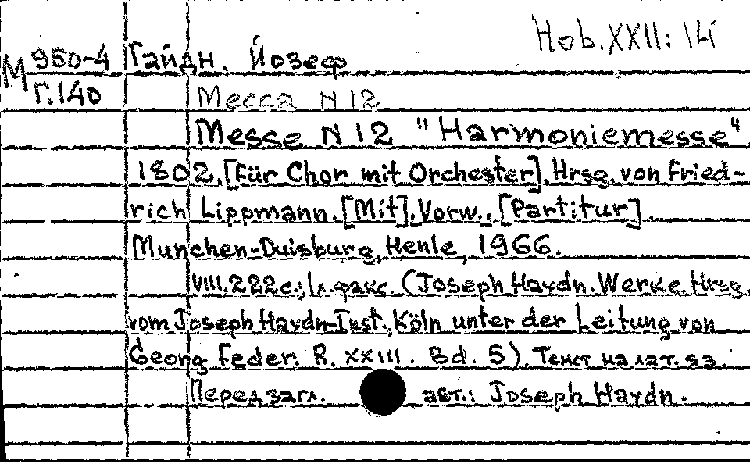 Hob. XXII: 14
М 950-4 Гайдн, Йозеф
Г.140
Месса N 12
Messe N 12 "Harmoniemesse"
1802. [Für Chor mit Orchester]. Hrsg. von Fried-
rich Lippmann. [Mit]. Vorw.. [Partitur]
Munchen-Duisburg, Henle, 1966.
VIII, 222 с.; 1 л. факс. (Joseph Haydn. Werke. Hrsg.
vom Joseph Haydn-Inst., Köln unter der Leitung von
Georg Feder. R. XXIII. Bd. 5). Текст на лат. яз.
Перед загл. авт.: Joseph Haydn.